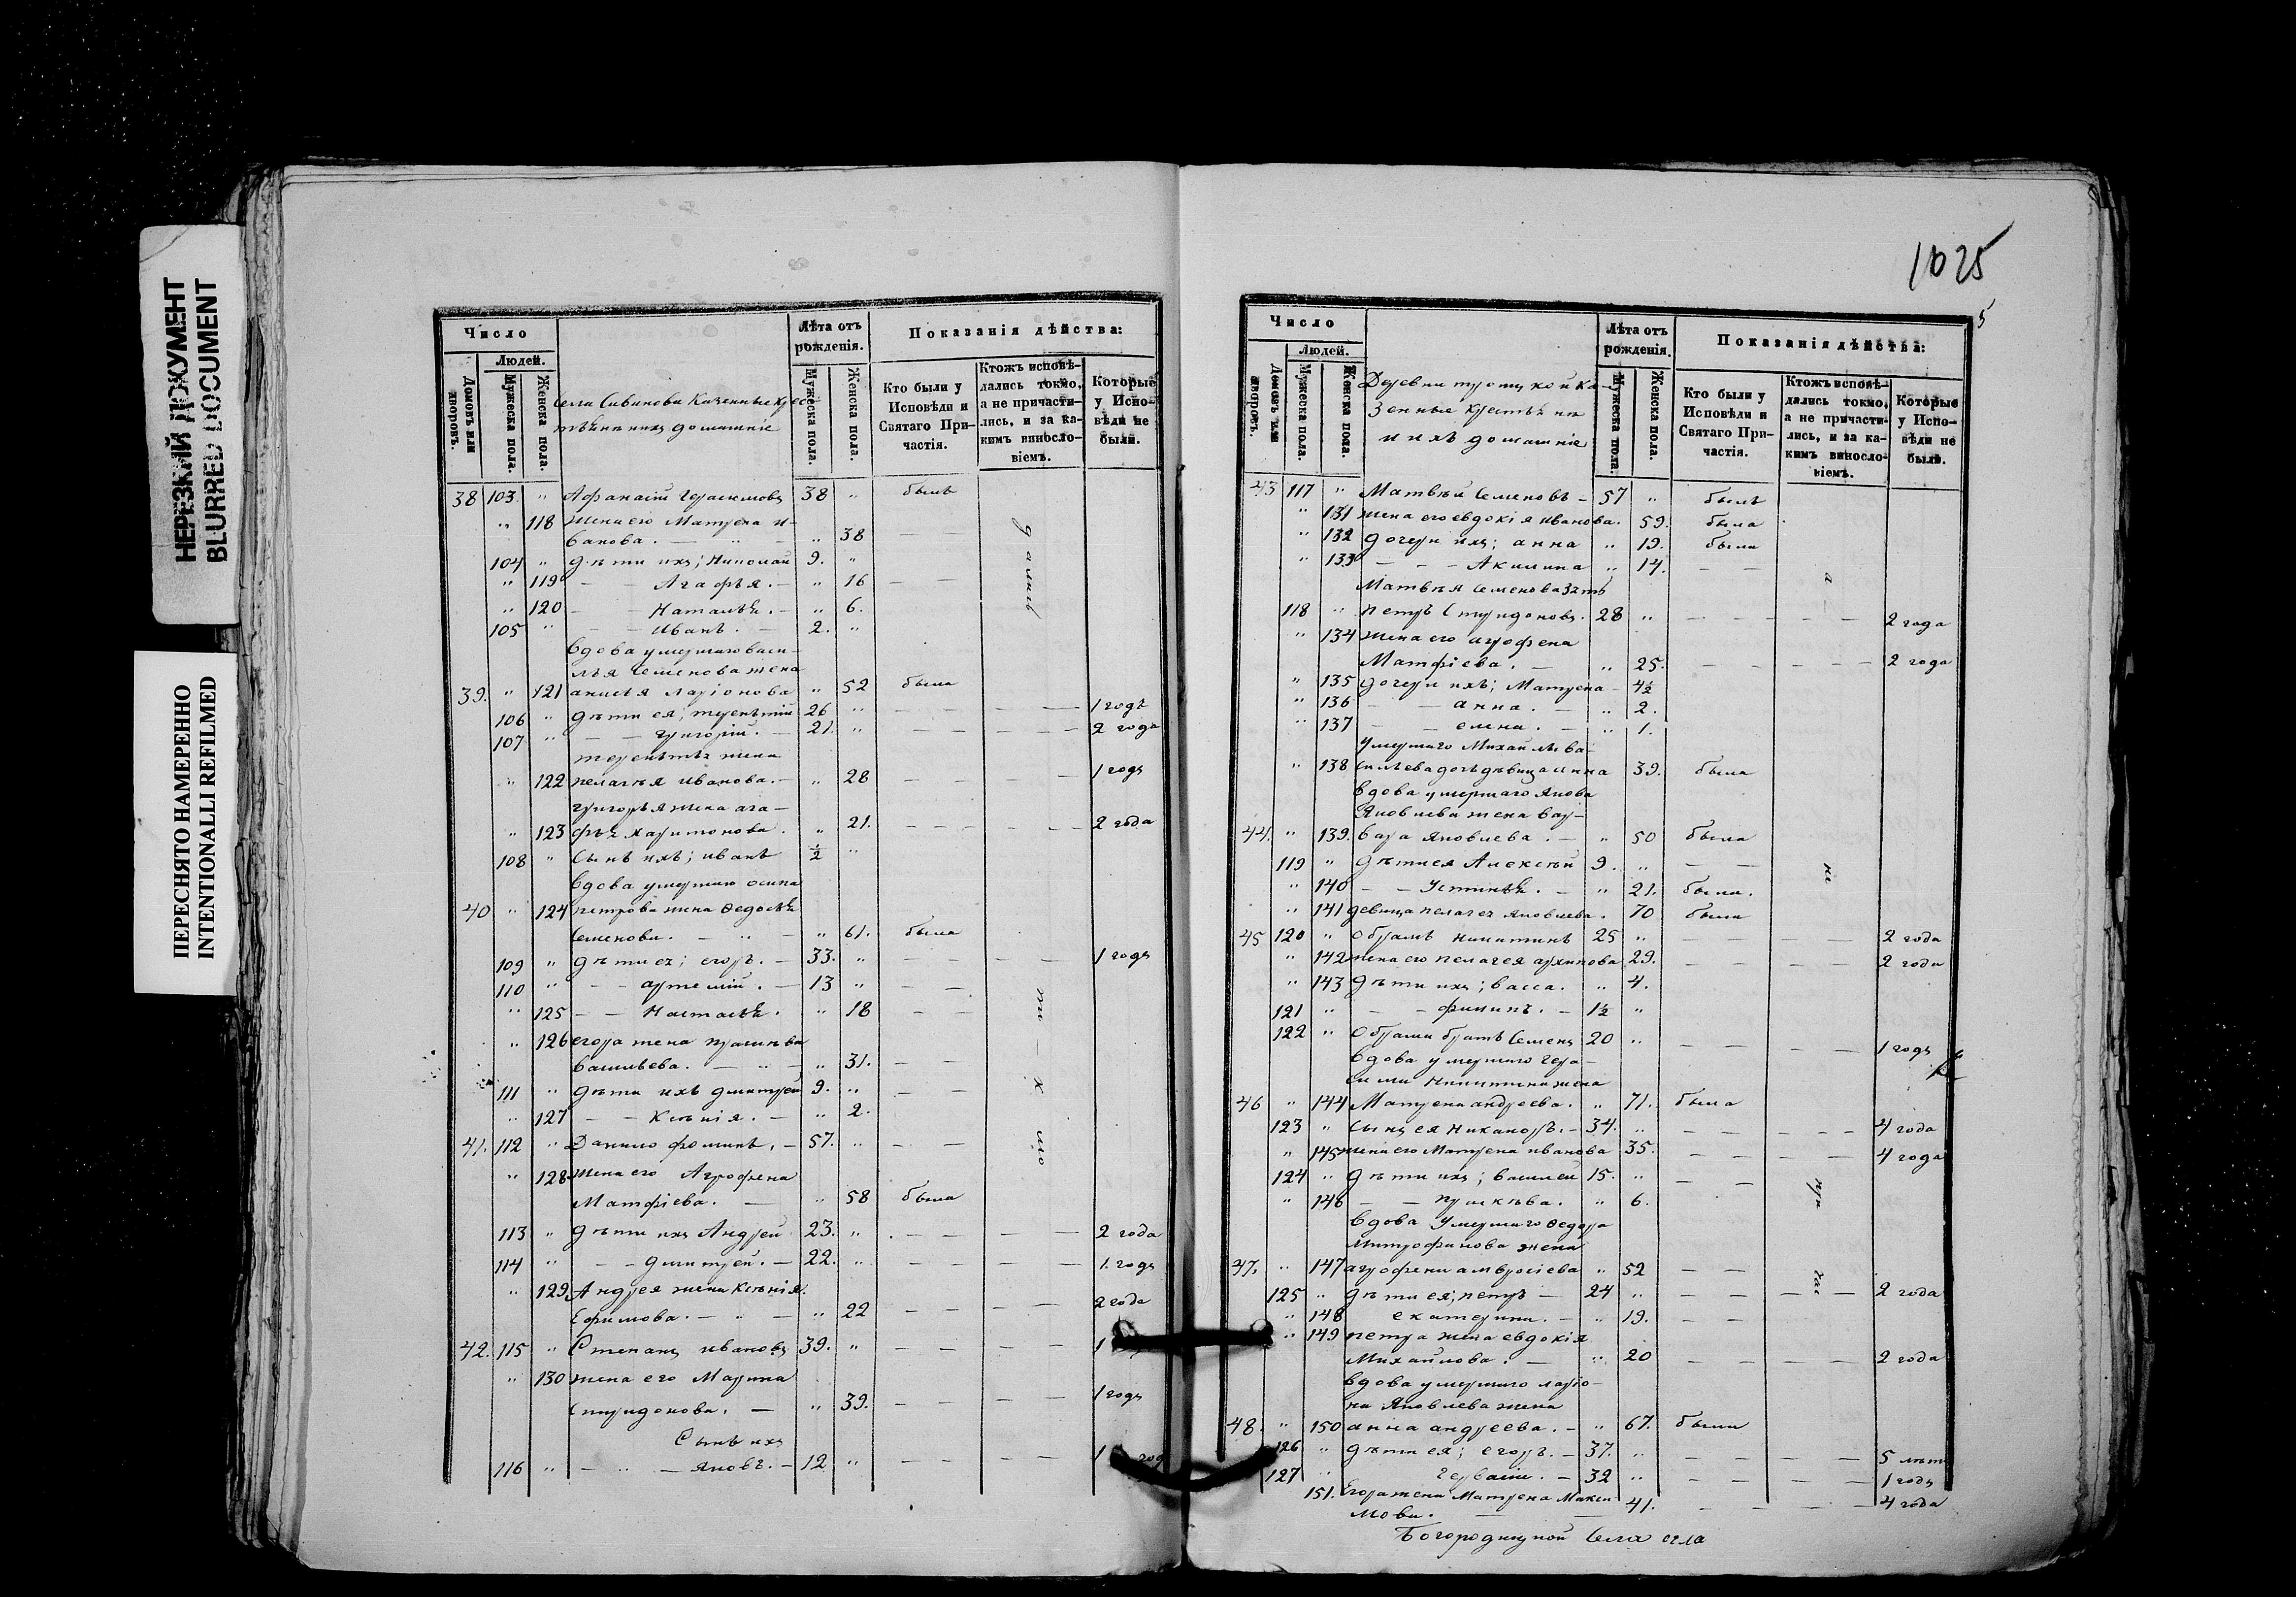 НЕРЕЗКИЙ ДОКУМЕНТ
BLURRED DOCUMENT
ПЕРЕСНЯТО НАМЕРЕННО
INTENTIONALLI REFILMED
Число
Людей.
Домовъ или дворовъ.
Мужеска пола.
Женска пола.
Села Савинова Казенные крес-
тьяни ихъ домашніе
Лѣта отъ рожденія.
Мужеска пола.
Женска пола.
Показанія дѣйства:
Кто были у Исповѣди и Святаго При-частія.
Ктожъ исповѣ-дались токмо, а не причасти-лись, и за ка-кимъ винносло-віемъ.
Которые у Испо-вѣди не были.
38 103 " Афанасій Герасимовъ 38 " былъ
" 118 жена его Матрена И-
ванова. — " — " 38 — —
104 " дѣти ихъ; Николай 9. "
" 119 — — Агафья. — " 16 — —
" 120 — — Наталья. — " 6.
105 " — — Иванъ. — 2. "
вдова умершаго Васи-
лья Семенова жена
39. " 121 Анисья Ларіонова " 52 была
106 " дѣти ея; Терентій 26 " — — — — 1 годъ
107 " — — Григорій. — 21. " — — — — 2 года
Терентья жена
" 122 Пелагѣя Иванова. — " 28 — — — — 1 годъ
Григорья жена Ага-
" 123 фья Харитонова. " 21. — — — — 2 года
108 " Сынъ ихъ; Иванъ ½ "
вдова умершаго Осипа
40 " 124 Петрова жена Ѳедосья
Семенова. — " — " 61. была
109 " дѣти ея; Егоръ. — 33. " — — — — 1 годъ
110 " — — Артемій. — 13 " — —
" 125 — — Настасья. " 18 — —
" 126 Егора жена Прасковья
Васильева. — " — " 31. —
111 " дѣти ихъ Дмитрей 9. " — —
" 127 — — Ксенія. — " 2.
41. 112 " Данило Фоминъ. — 57. " — —
" 128 жена его Агрофена
Матфіева. — " 58 была
113 " дѣти ихъ Андрей 23. " — — — — 2 года
114 " — — Дмитрей. — 22. " — — — — 1. годъ
" 129 Андрея жена Ксенія.
Ефимова. — " — " 22 — — — — 2 года
42. 115 " Степанъ Ивановъ 39. " — — — — 1
" 130 жена его Марина
Спиридонова. — " 39. — — — — 1 годъ
Сынъ ихъ
116 " — " — Яковъ. — 12 " — — — — 1 годъ
1025
5
Число
Людей.
Домовъ или дворовъ.
Мужеска пола.
Женска пола.
Деревни Троицкой Ка-
зенные крестьяни
и ихъ домашніе
Лѣта отъ рожденія.
Мужеска пола.
Женска пола.
Показанія дѣйства:
Кто были у Исповѣди и Святаго При-частія.
Ктожъ исповѣ-дались токмо, а не причасти-лись, и за ка-кимъ винносло-віемъ.
Которые у Испо-вѣди не были.
43 117 " Матвѣй Семеновъ — 57 " былъ
" 131 жена его Евдокія Иванова. 59. была
" 132 дочери ихъ; Анна " 19. была
" 133 — — — Акилина " 14. — —
Матвѣя Семенова зять
118 " Петръ Спиридоновъ. 28 " — — — — 2 года
" 134 жена его Агрофена
Матфіева. — " 25. — — — — 2 года
" 135 дочери ихъ; Матрена — 4½
" 136 — — Анна. — " 2.
" 137 — Елена. — " 1.
умершаго Михайлы Ва-
" 138 сильева дочь дѣвица Анна 39. была
вдова умершаго Якова
Яковлева жена Вар-
44. " 139. вара Яковлева. — " 50 была
119 " дѣти ея Алексѣй 9. " — —
" 140 — — Устинья. — " 21. была.
" 141 девица Пелагея Яковлева. 70 была
45 120 " Обрамъ Никитинъ 25 " — — — — 2 года
" 142 жена его Пелагея Архипова 29. — — — — 2 года
" 143 дѣти ихъ; Васса. " 4.
121 " — — Филипъ. — 1½ "
122 " Обрама братъ Семенъ 20 " — — — — 1 годъ
вдова умершаго Гера-
сима Никитина жена
46 " 144 Матрена Андреева. " 71. была
123 " Сынъ ея Никаноръ. — 34. " — — — — 4 года
" 145 жена его Матрена Иванова 35. — — — — 4 года
124 " дѣти ихъ; Василей 15. " — —
" 146 — — Прасковья. " 6.
вдова умершаго Ѳедора
Митрофанова жена
47. " 147 Агрофена Амвросіева " 52 — —
125 " дѣти ея; Петръ — 24 " — — — — 2 года
" 148 Екатерина. — " 19. — —
" 149 Петра жена Евдокія
Михайлова. — " 20 — — — — 2 года
вдова умершаго Ларіо-
на Яковлева жена
48. " 150 Анна Андреева. — " 67. была
126 " дѣти ея; Егоръ. — 37. " — — — — 5 лѣтъ
127 " Гервасій. — 32 " — — — — 1 годъ
151. Егора жена Матрена Макси
мова. — — 41. — — — — 4 года
Богородицкой села